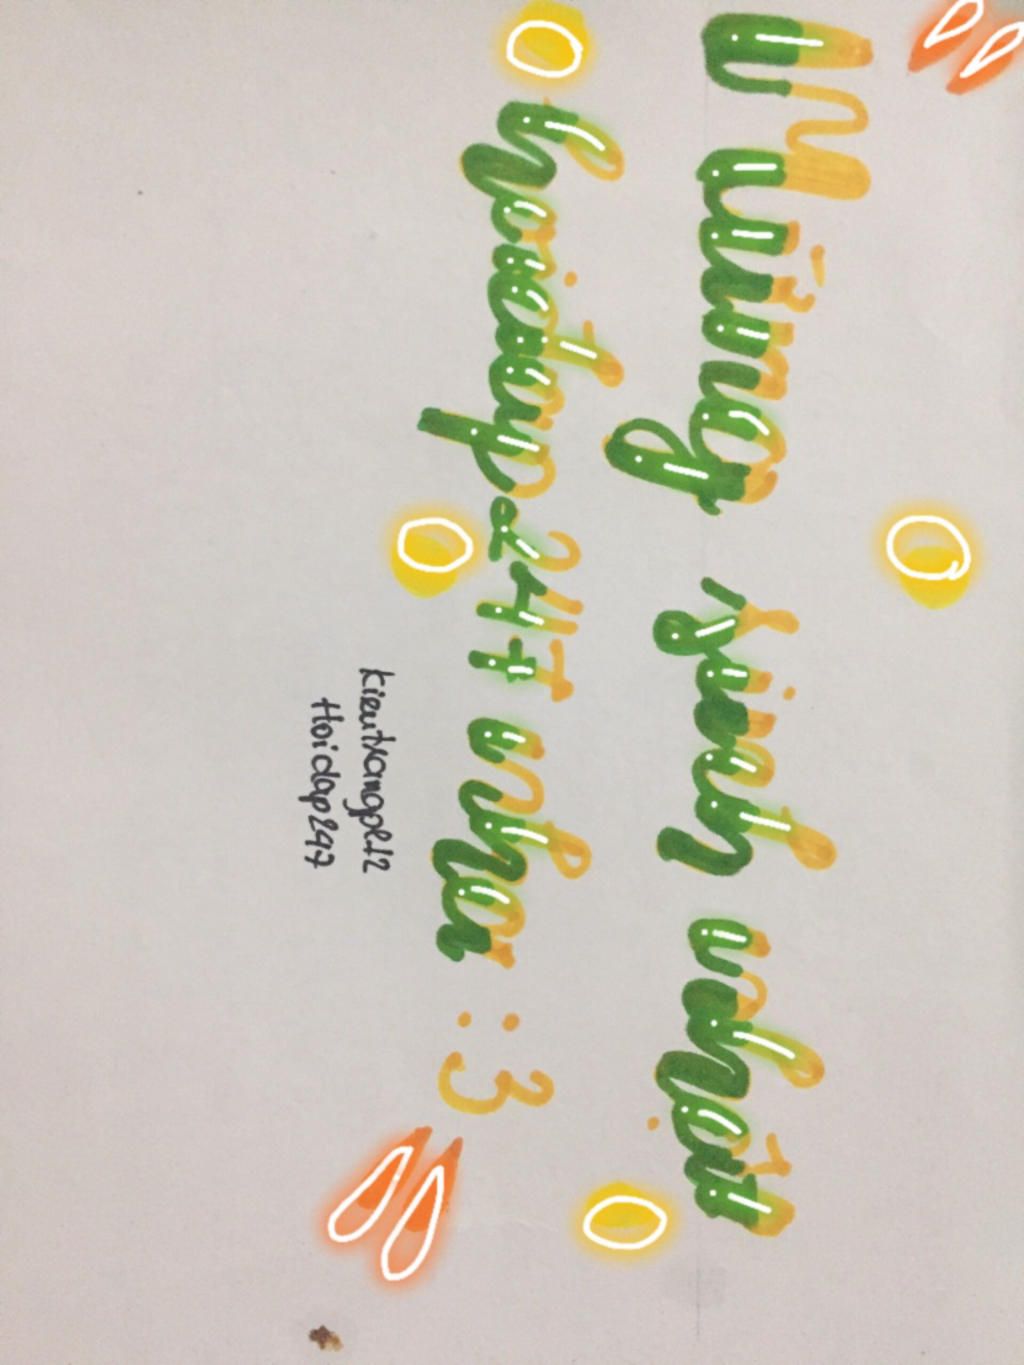 Mừng sinh nhật
hoidap247 nha :3
kieutrangplt2
Hoidap247